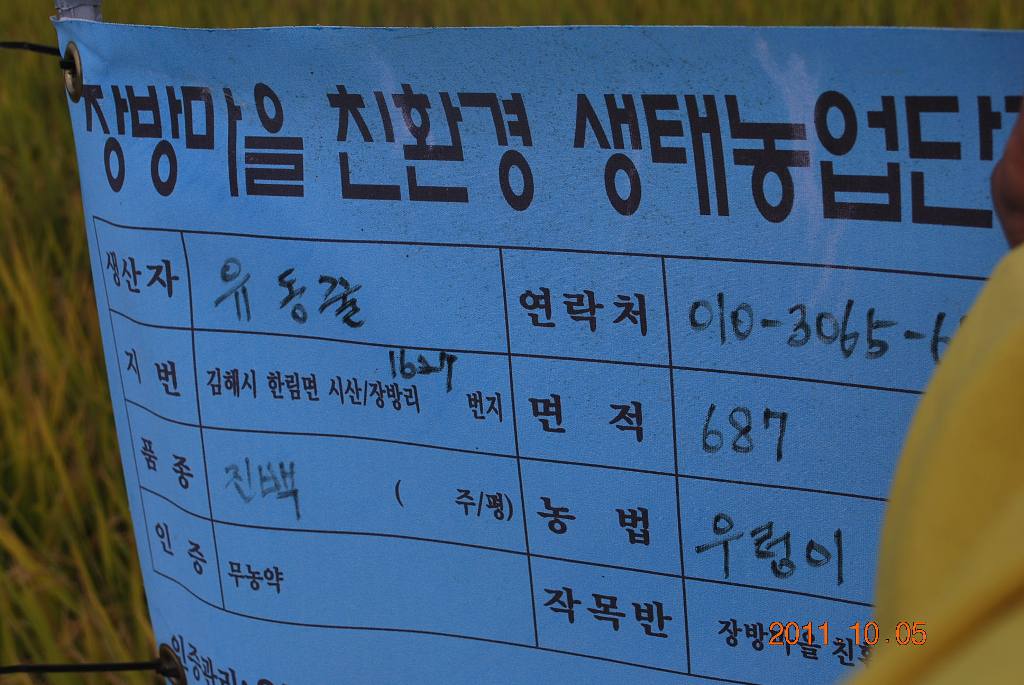 장방마을 친환경 생태농업단
생산자 유동꿀 연락처 010-3065-6
지번 김해시 한림면 시산/장방리 1627 번지 면적 687
품종 진백 ( 주/평) 농법 우렁이
인증 무농약 작목반 장방마을 친환
인증관리:
2011.10.05